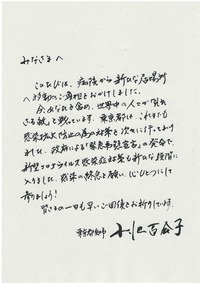 みなさまへ
このたびは、病院から新たな居場所
へ移動のご負担をおかけしました。
今、日本を含め、世界中の人々が「見え
ざる敵」と戦っています。東京都は、これまでも
感染拡大防止の為の対策を次々に行ってまい
りましたが、政府による「緊急事態宣言」の発令で、
新型コロナウイルス感染症対策も新たな段階に
入りました。感染の終息を願い、心ひとつにして
参りましょう！
皆さまの一日も早いご回復をお祈りしています。
東京都知事 小池百合子